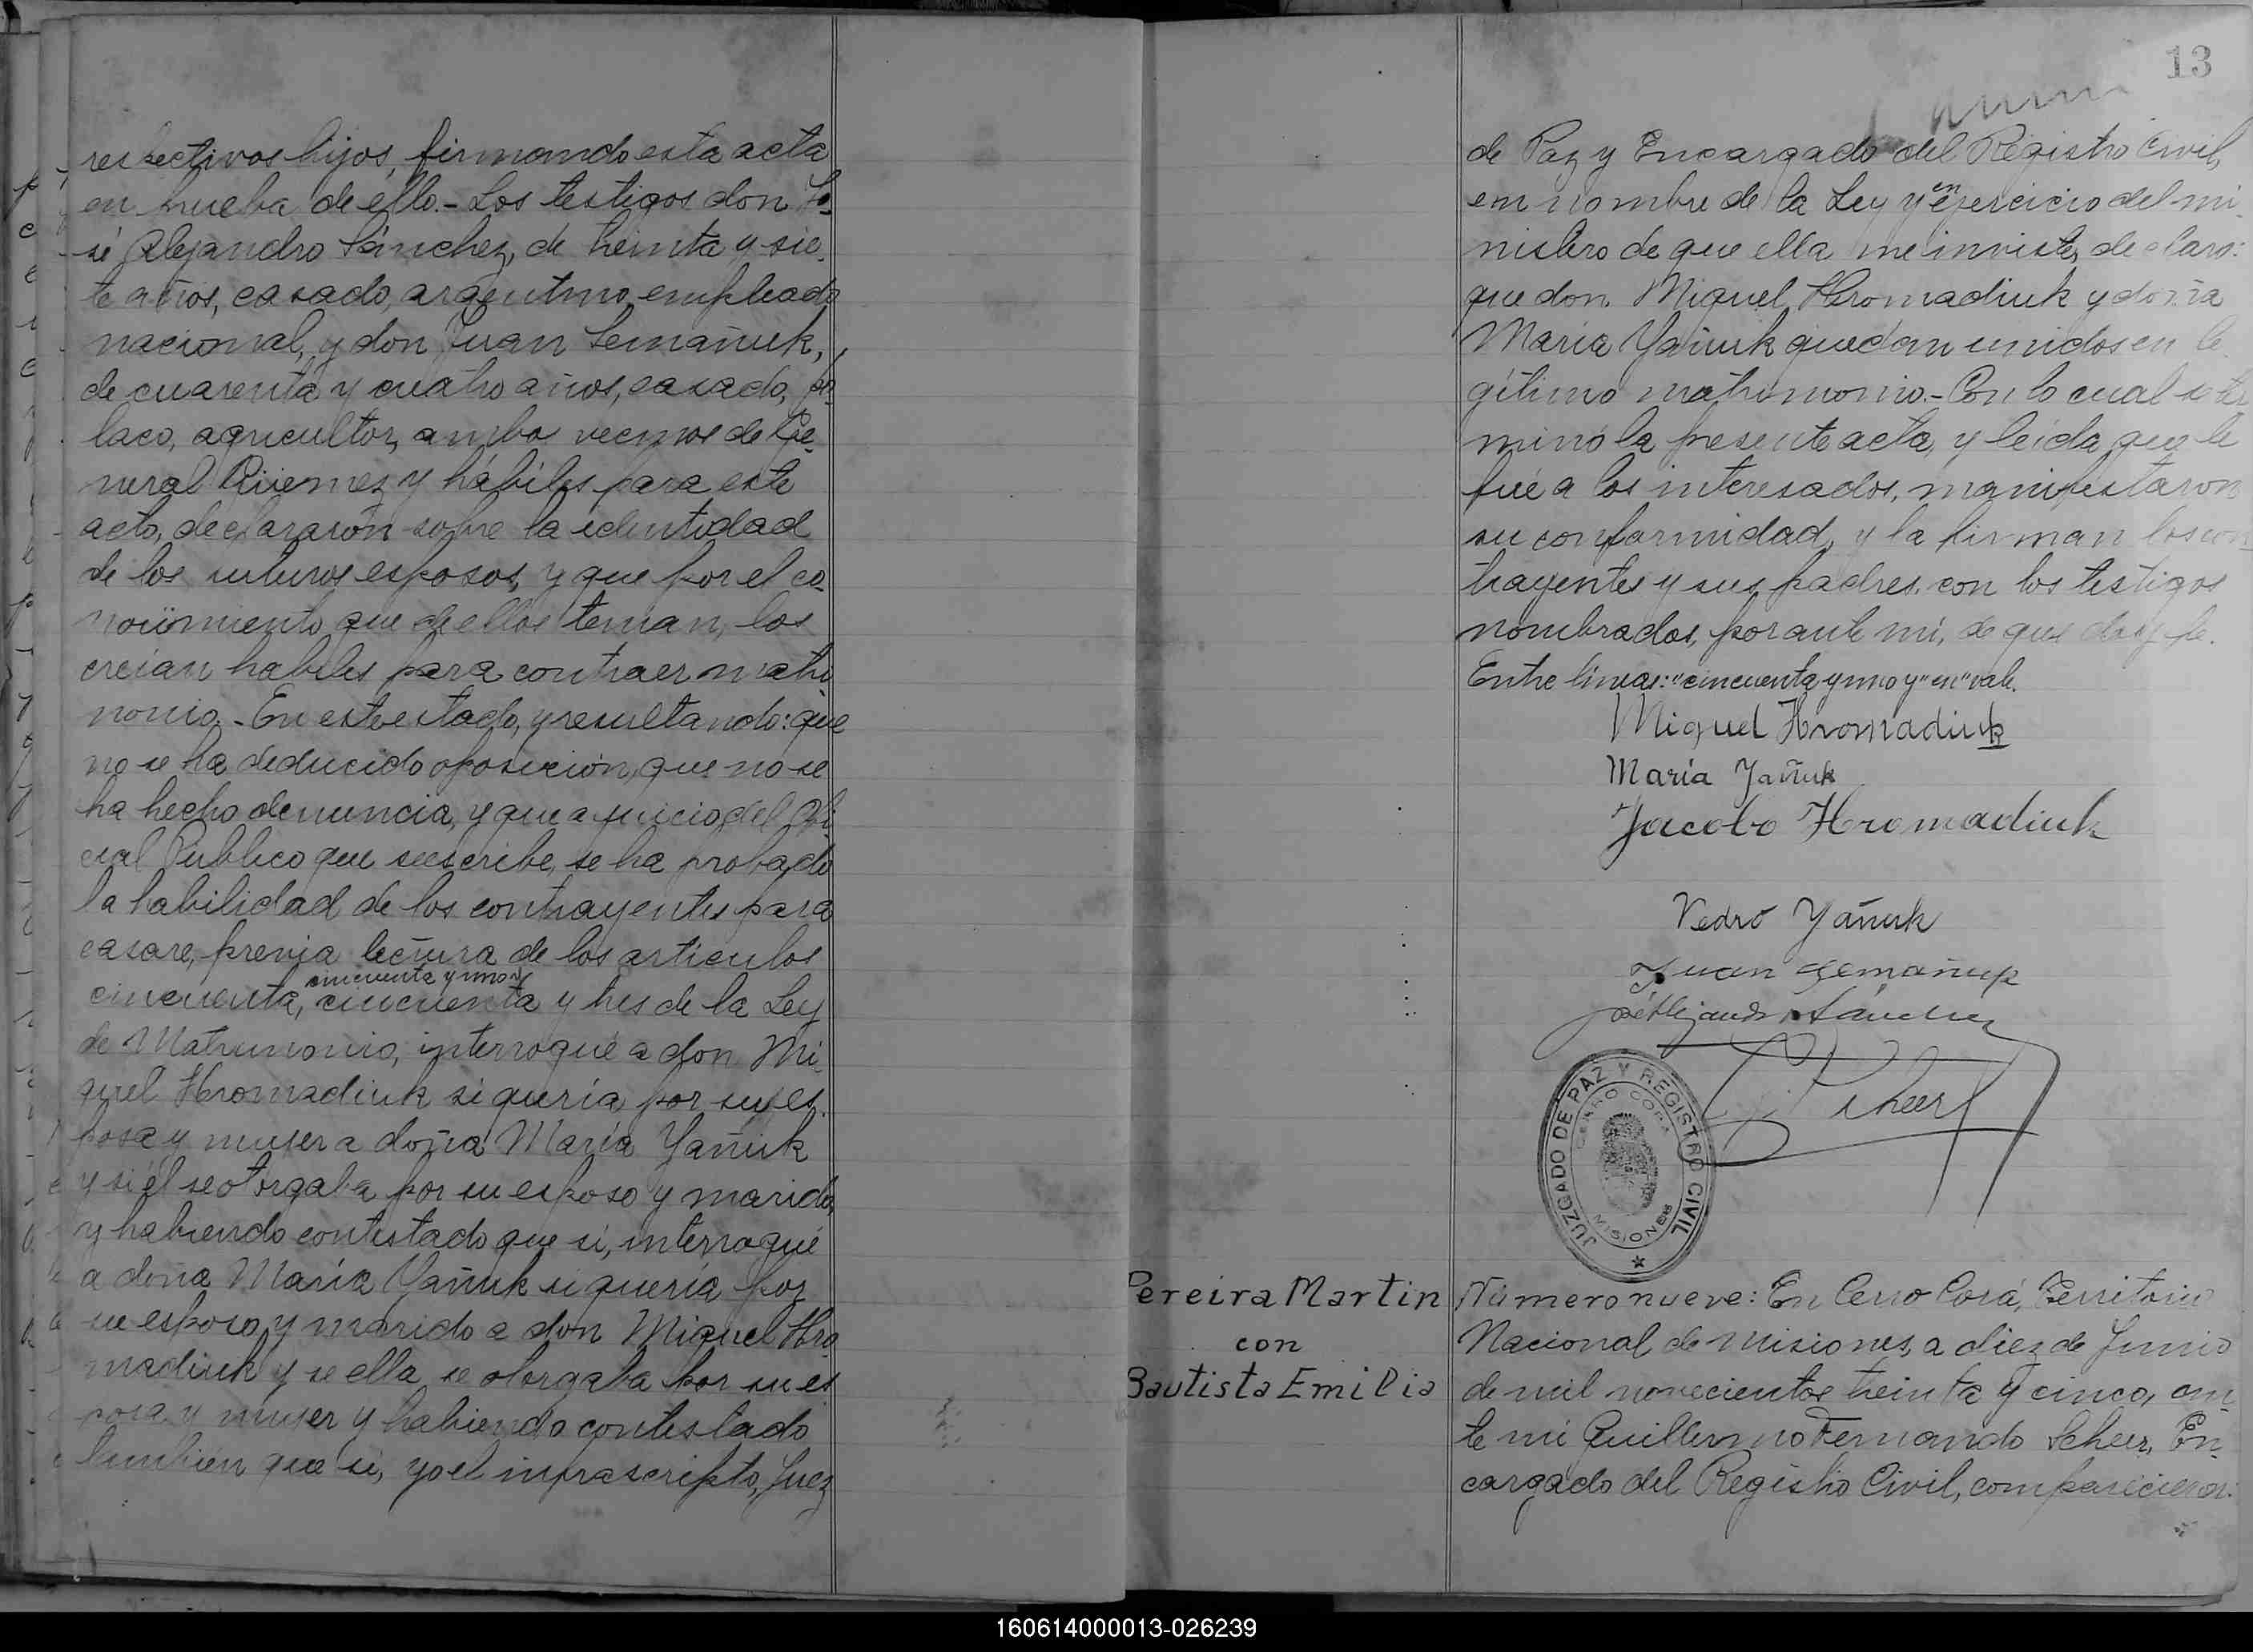 respectivos hijos, firmando esta acta
en prueba de ello.- Los testigos don Jo-
sé Alejandro Sánchez, de treinta y sie-
te años, casado, argentino, empleado
nacional, y don Juan Semañuk,
de cuarenta y cuatro años, casado, po-
laco, agricultor, ambos vecinos de Ge-
neral Güemez y hábiles para este
acto, declararon sobre la identidad
de los futuros esposos, y que por el co-
nocimiento que de ellos tenian, los
creían habiles para contraer matri-
monio.- En este estado, y resultando: que
no se ha deducido oposición, que no se
ha hecho denuncia, y que a juicio del Ofi-
cial Público que suscribe, se ha probado
la habilidad de los contrayentes para
casarse, previa lectura de los artículos
cincuenta y uno y
cincuenta, cincuenta y tres de la Ley
de Matrimonio, interrogué a don Mi-
guel Hromadiuk si quería por su es-
posa y mujer a doña María Yañuk
y si él se otorgaba por su esposo y marido,
y habiendo contestado que si, interrogué
a doña María Yañuk si quería por
su esposo y marido a don Miguel Hro-
madiuk y se ella se otorgaba por su es-
posa y mujer y habiendo contestado
también que si, yo el infrascripto, Juez
13
de Paz y Encargado del Registro Civil,
em nombre de la Ley y en ejercicio del mi-
nistero de que ella me inviste, declaro:
que don Miguel Hromadiuk y doña
María Yañuk quedan unidos en le-
gítimo matrimonio.- Con lo cual se ter-
minó la presente acta, y leída que le
fué a los interesados, manifestaron
su conformidad, y la firman los con-
trayentes y sus padres con los testigos
nombrados, por ante mi, de que doy fe.
Entre líneas: "cincuenta y uno y" "en" vale.
Miguel Hromadiuk
María Yañuk
Jacobo Hromadiuk
Pedro Yañuk
Juan Semañuk
José Alejandro Sánchez
Scheer
JUZGADO DE PAZ Y REGISTRO CIVIL
CERRO CORA
MISIONES
Pereira Martin
con
Bautista Emilia
Número nueve: En Cerro Corá, Territorio
Nacional de Misiones, a diez de Junio
de mil novecientos treinta y cinco, an-
te mi Guillermo Fernando Scheer, En-
cargado del Registro Civil, comparecieron:
160614000013-026239